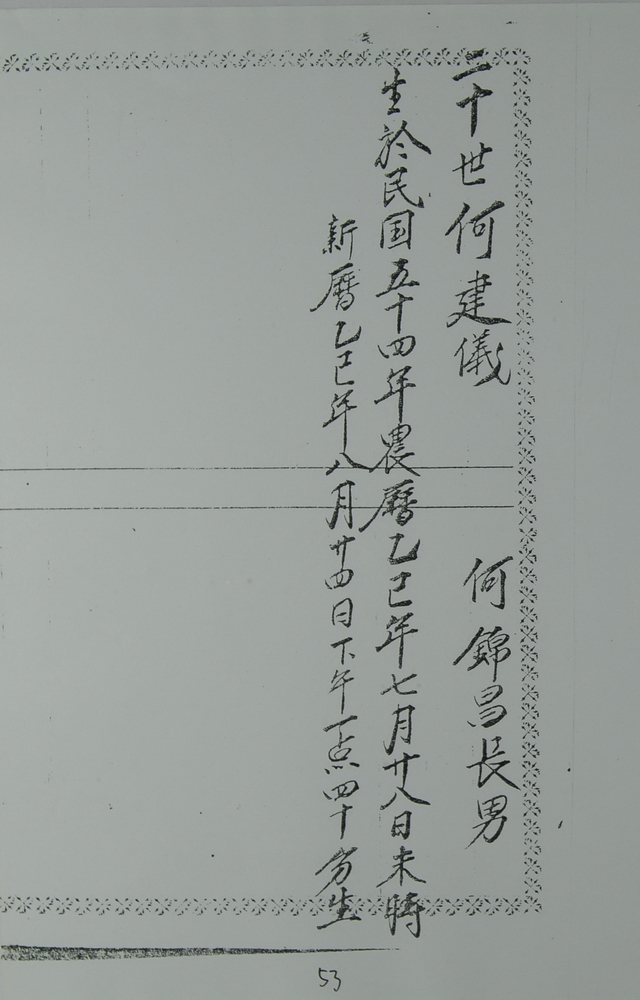 二十世何建儀 何錦昌長男
生於民国五十四年農曆乙巳年七月廿八日未時
新曆乙巳年八月廿四日下午一点四十分生
53